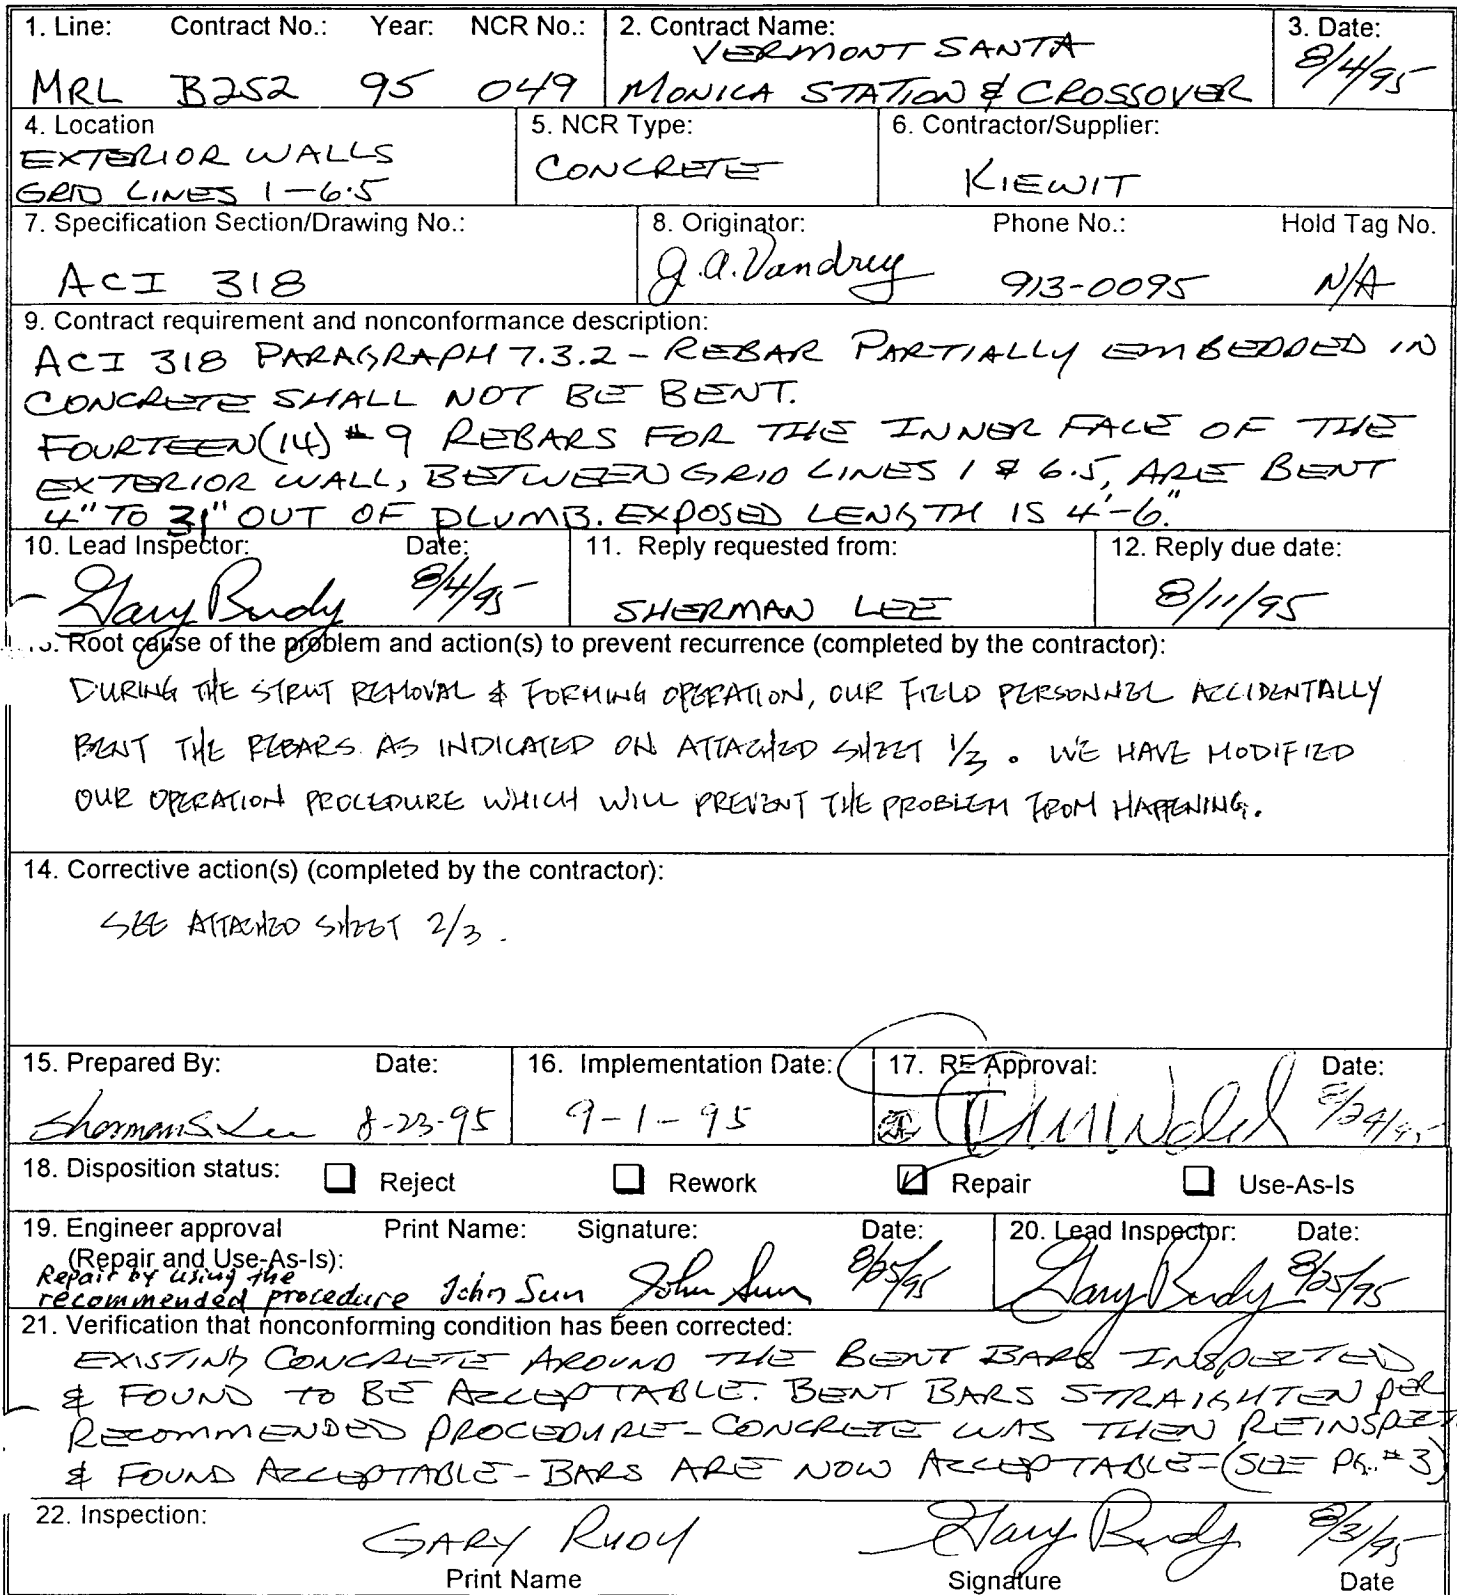 1. Line: Contract No.: Year: NCR No.: 2. Contract Name: 3. Date:
VERMONT SANTA
MRL B252 95 049 MONICA STATION & CROSSOVER 8/4/95
4. Location 5. NCR Type: 6. Contractor/Supplier:
EXTERIOR WALLS CONCRETE KIEWIT
GRID LINES 1-6.5
7. Specification Section/Drawing No.: 8. Originator: Phone No.: Hold Tag No.
ACI 318 J.A. Vandrey 913-0095 N/A
9. Contract requirement and nonconformance description:
ACI 318 PARAGRAPH 7.3.2 - REBAR PARTIALLY EMBEDDED IN
CONCRETE SHALL NOT BE BENT.
FOURTEEN (14) #9 REBARS FOR THE INNER FACE OF THE
EXTERIOR WALL, BETWEEN GRID LINES 1 & 6.5, ARE BENT
4" TO 31" OUT OF PLUMB. EXPOSED LENGTH IS 4'-6".
10. Lead Inspector: Date: 11. Reply requested from: 12. Reply due date:
Gary Rudy 8/4/95 SHERMAN LEE 8/11/95
Root cause of the problem and action(s) to prevent recurrence (completed by the contractor):
DURING THE STRUT REMOVAL & FORMING OPERATION, OUR FIELD PERSONNEL ACCIDENTALLY
BENT THE REBARS AS INDICATED ON ATTACHED SHEET 1/3. WE HAVE MODIFIED
OUR OPERATION PROCEDURE WHICH WILL PREVENT THE PROBLEM FROM HAPPENING.
14. Corrective action(s) (completed by the contractor):
SEE ATTACHED SHEET 2/3.
15. Prepared By: Date: 16. Implementation Date: 17. RE Approval: Date:
Sherman S. Lee 8-23-95 9-1-95 8/24/95
18. Disposition status: Reject Rework Repair Use-As-Is
19. Engineer approval Print Name: Signature: Date: 20. Lead Inspector: Date:
(Repair and Use-As-Is):
Repair by using the
recommended procedure John Sun John Sun 8/25/95 Gary Rudy 8/25/95
21. Verification that nonconforming condition has been corrected:
EXISTING CONCRETE AROUND THE BENT BARS INSPECTED
& FOUND TO BE ACCEPTABLE. BENT BARS STRAIGHTEN PER
RECOMMENDED PROCEDURE - CONCRETE WAS THEN REINSPECT
& FOUND ACCEPTABLE - BARS ARE NOW ACCEPTABLE - (SEE PG. #3)
22. Inspection: GARY RUDY Gary Rudy 8/31/95
Print Name Signature Date